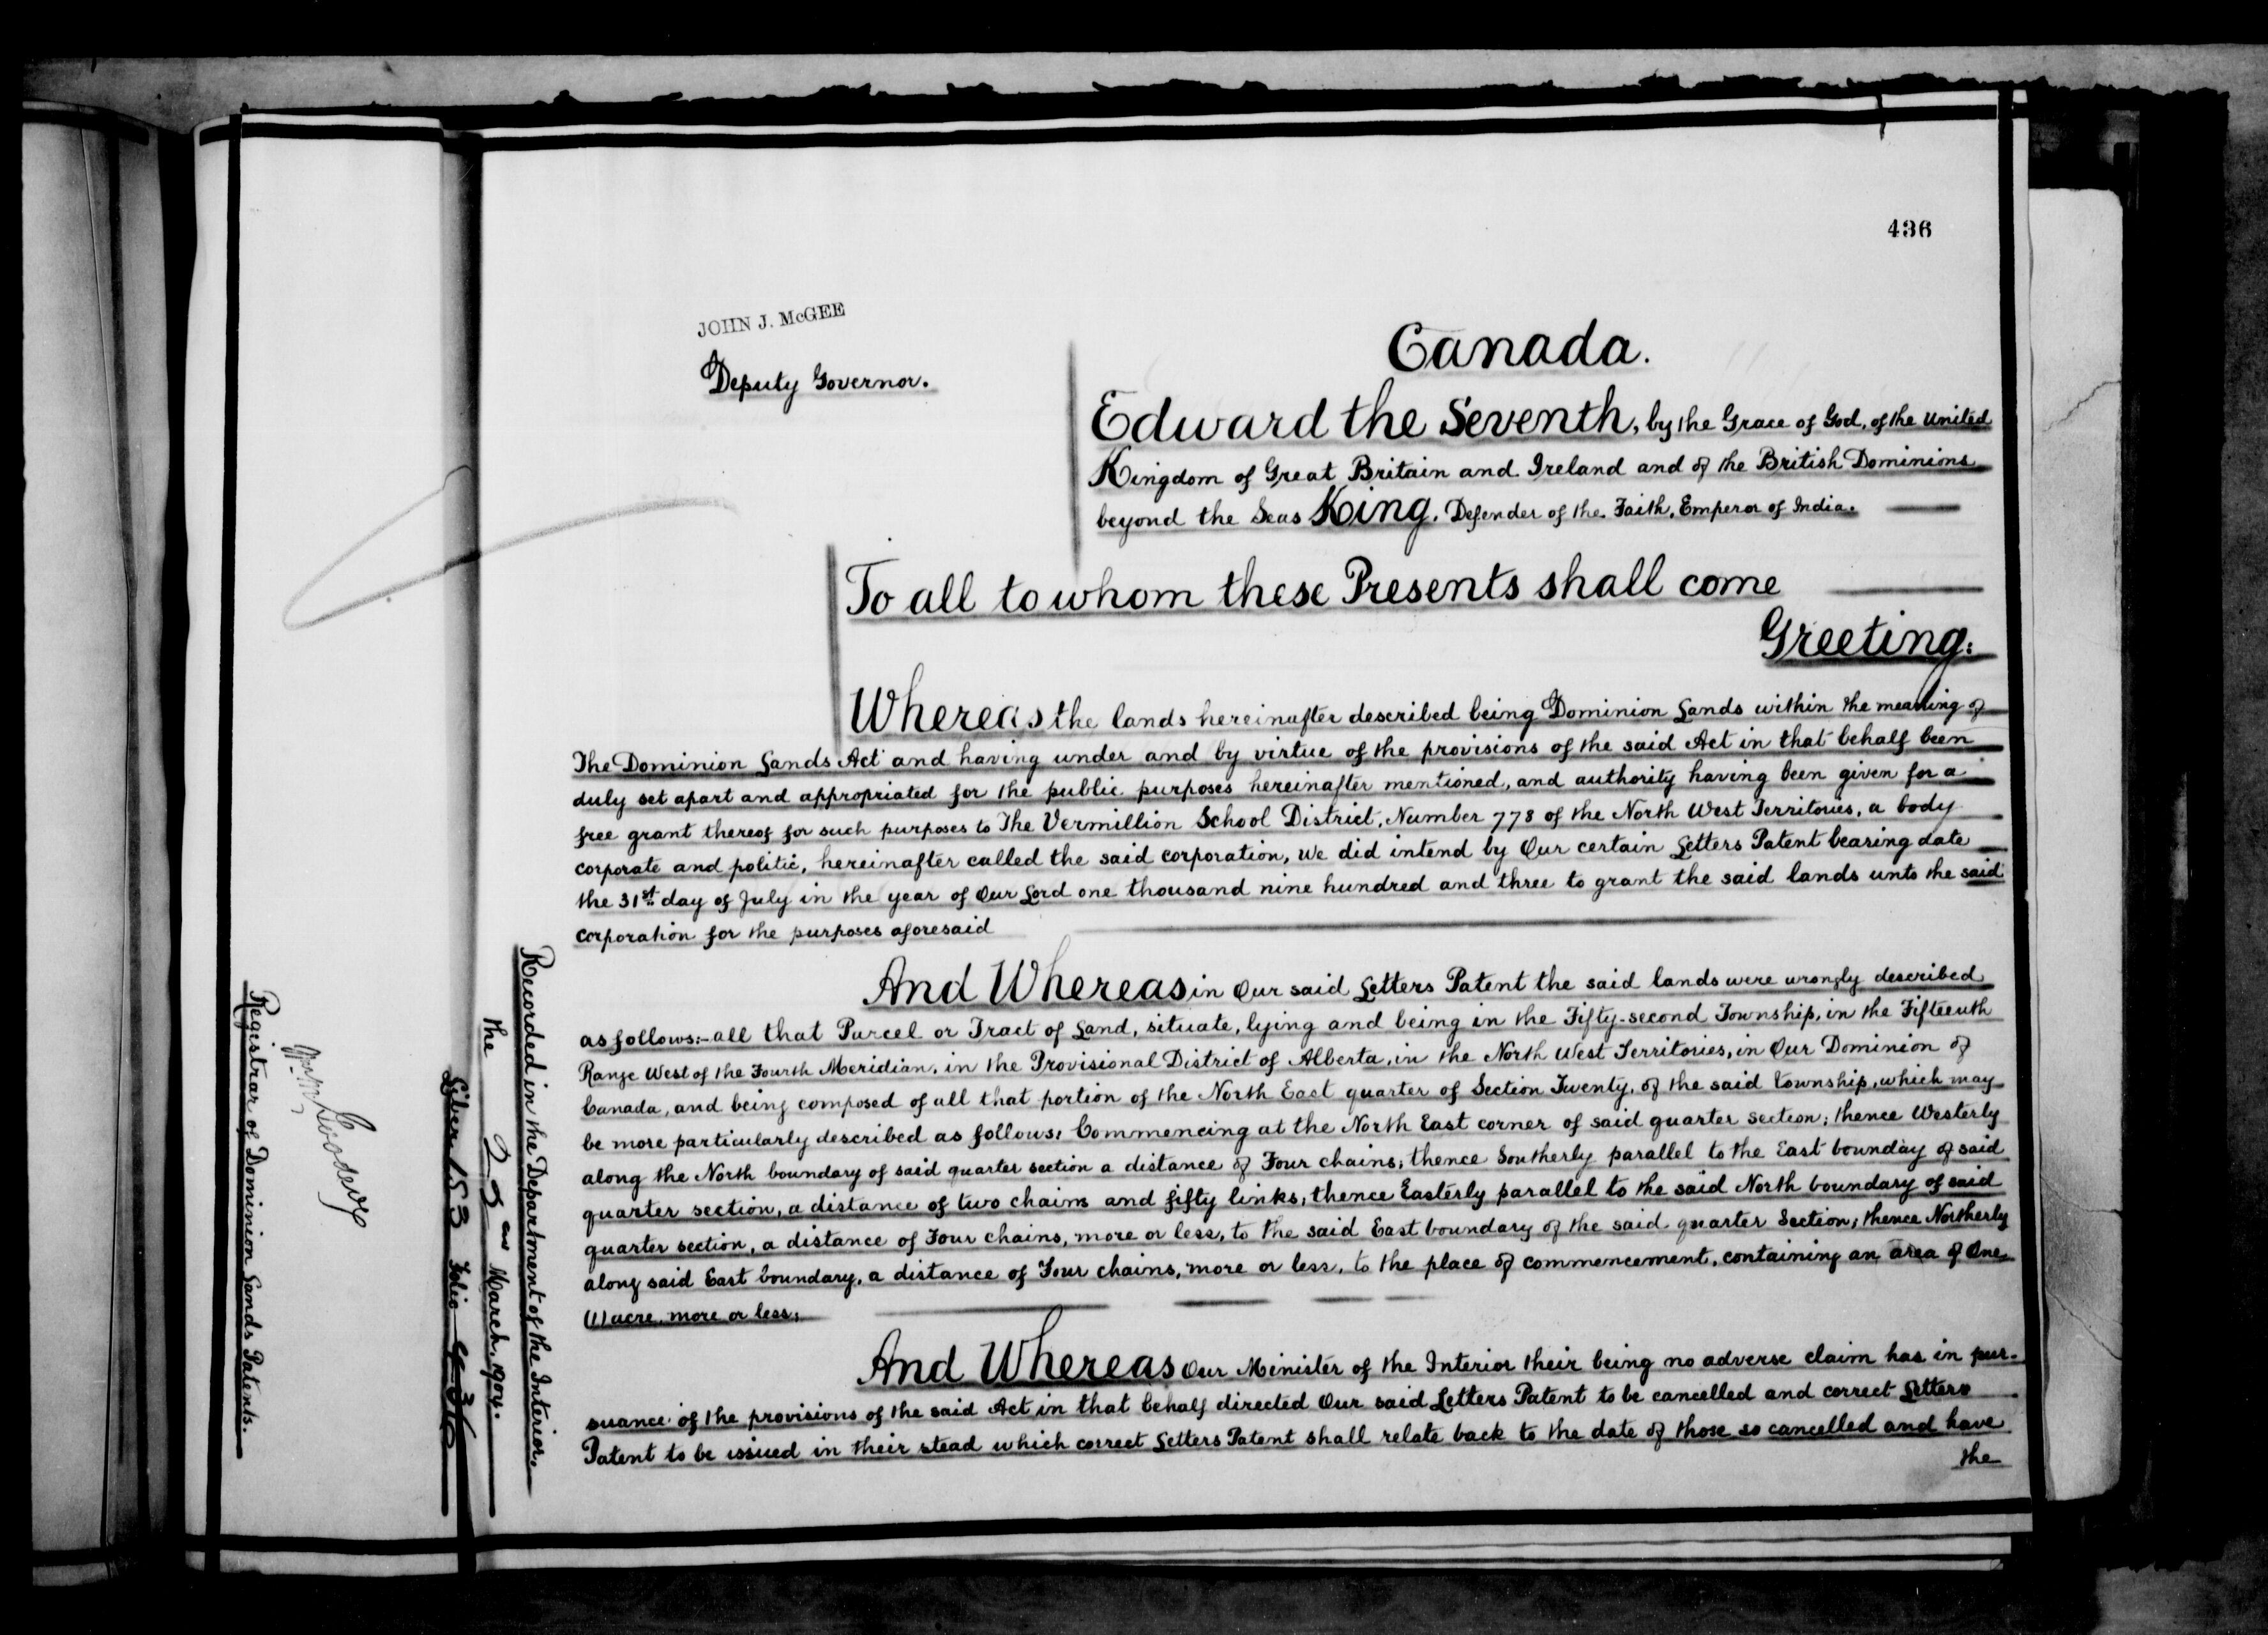 436
JOHN J. McGEE
Deputy Governor.
Canada.
Edward the Seventh, by the Grace of God, of the United
Kingdom of Great Britain and Ireland and of the British Dominions
beyond the Seas King, Defender of the Faith, Emperor of India.
To all to whom these Presents shall come
Greeting:
Whereas the lands hereinafter described being Dominion Lands within the meaning of
The Dominion Lands Act and having under and by virtue of the provisions of the said Act in that behalf been
duly set apart and appropriated for the public purposes hereinafter mentioned, and authority having been given for a
free grant thereof for such purposes to The Vermillion School District, Number 778 of the North West Territories, a body
corporate and politic, hereinafter called the said corporation, We did intend by Our certain Letters Patent bearing date
the 31st day of July in the year of Our Lord one thousand nine hundred and three to grant the said lands unto the said
corporation for the purposes aforesaid
And Whereas in Our said Letters Patent the said lands were wrongly described
as follows:- all that Parcel or Tract of Land, situate, lying and being in the Fifty-second Township, in the Fifteenth
Range West of the Fourth Meridian, in the Provisional District of Alberta, in the North West Territories, in Our Dominion of
Canada, and being composed of all that portion of the North East quarter of Section Twenty, of the said township, which may
be more particularly described as follows: Commencing at the North East corner of said quarter section; thence Westerly
along the North boundary of said quarter section a distance of Four chains; thence Southerly parallel to the East bounday of said
quarter section, a distance of two chains and fifty links; thence Easterly parallel to the said North boundary of said
quarter section, a distance of Four chains, more or less, to the said East boundary of the said quarter Section; thence Northerly
along said East boundary, a distance of Four chains, more or less, to the place of commencement, containing an area of One
(1) acre, more or less;
And Whereas Our Minister of the Interior their being no adverse claim has in pur-
suance of the provisions of the said Act in that behalf directed Our said Letters Patent to be cancelled and correct Letters
Patent to be issued in their stead which correct Letters Patent shall relate back to the date of those so cancelled and have
the
Recorded in the Department of the Interior.
the March, 
Liber 153 Folio 436
Registrar of Dominion Lands Patents.